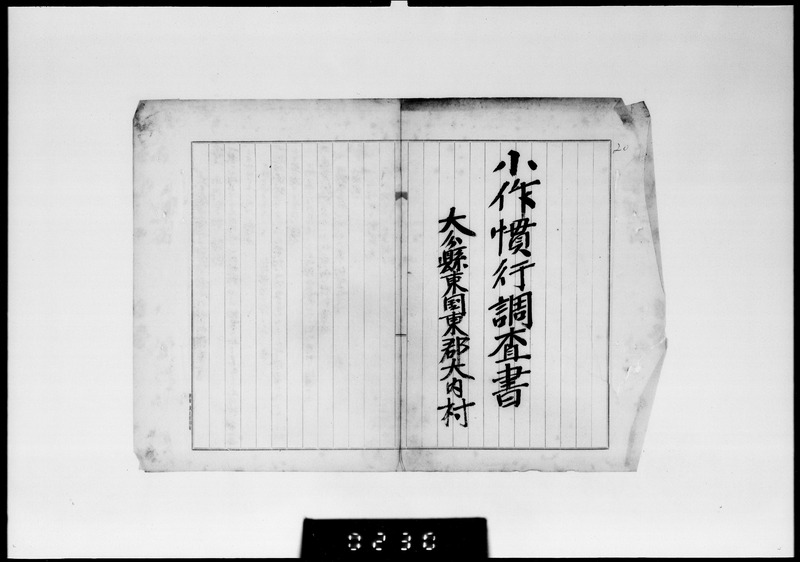 小作慣行調査書
大分縣東国東郡大内村
20
0230